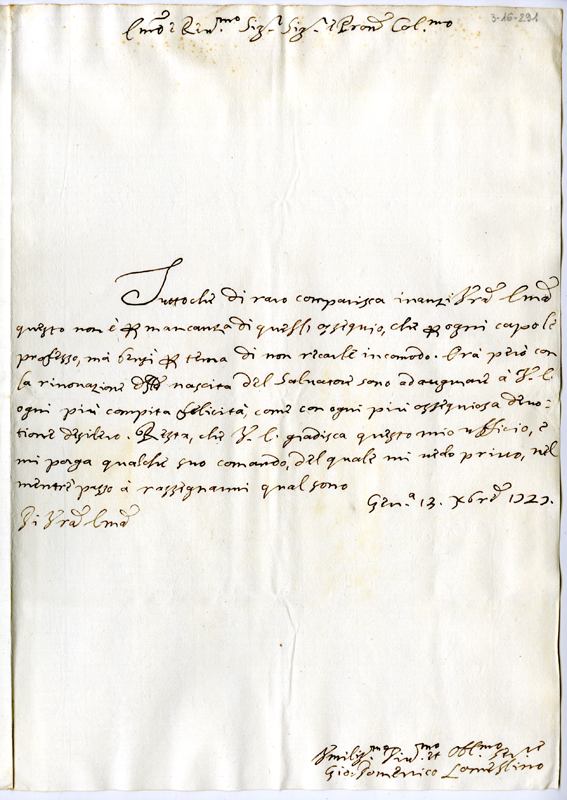 3-16-291
Emo: e Rev.mo Sig.r Sig.r e Pron Col.mo
Tuttoche di raro comparisca inanzi Vra Ema
questo non è p mancanza di quelli ossequio, che p ogni capo le
professo, mà benzi p tema di non recarle incomodo. Ora però con
la rinovazione della nascita del Salvatore sono ad augurare à V. E.
ogni più compita felicità, come con ogni più ossequiosa devo-
tione desidero. Resta, che V. E. gradisca questo mio ufficio, e
mi porga qualche suo comando, del quale mi vedo privo, nel
mentre passo à rassegnarmi qual sono
Gen.a 13. Xbre 1727.
Di Vra Ema
Umiliss.mo Div.mo et Obl.mo Ser.re
Gio: Domenico Lomellino